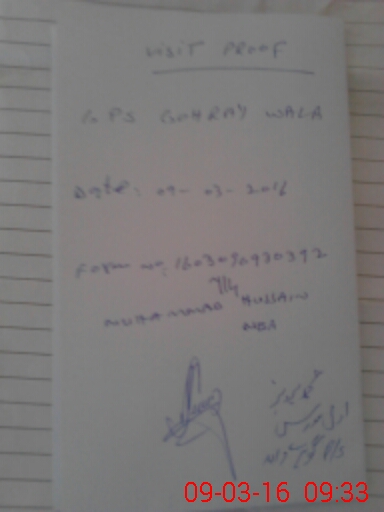 VISIT PROOF
GPS GOHRAY WALA
Date: 09-03-2016
Form no, 1603090930392
MUHAMMAD HUSSAIN
MEA
محمد
P/S
09-03-16 09:33